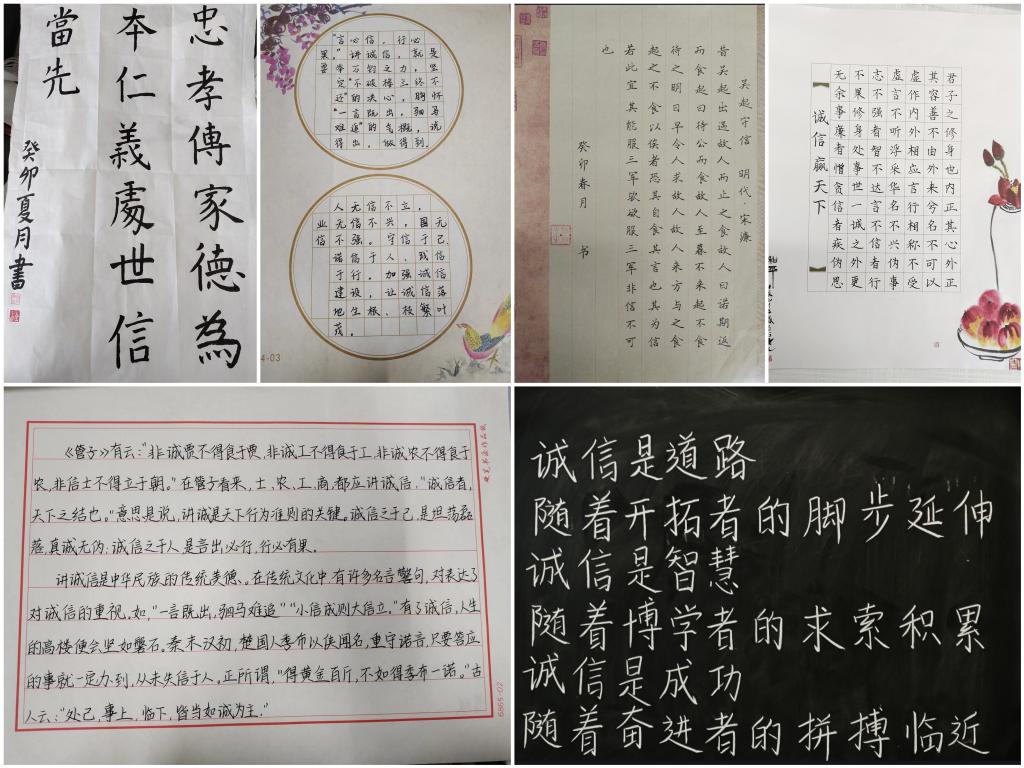 忠孝傳家德為
本仁義處世信
當先
癸卯夏月書
“言必信，行必
果。”讲诚信，就是
要举万钧之力，坚
定“不破楼兰终不
还”的决心，胸怀
“一言既出，驷马
难追”的气概，说
得出，做得到。
人无信不立，
业无信不兴，国无
信不强。守信于己、
诺信于人、践信
于行。加强诚信
建设，让诚信落
地生根、枝繁叶
茂。
4-03
吴起守信 明代·宋濂
昔吴起出遇故人而止之食故人曰诺期返
而食起曰待公而食故人至暮不来起不食
待之明日早令人求故人故人来方与之食
起之不食以俟者恐其自食其言也其为信
若此宜其能服三军欤欲服三军非信不可
也
癸卯春月 书
君子之修身也内正其心外正
其容善不由外来兮名不可以
虚作内外相应言行相称不受
虚言不听浮采华名不兴伪事
志不强者智不达言不信者行
不果修身处事世一诚之外更
无余事廉者憎贪信者疾伪思
诚信赢天下
《管子》有云：“非诚贾不得食于贾，非诚工不得食于工，非诚农不得食于
农，非信士不得立于朝。”在管子看来，士、农、工、商，都应讲诚信，“诚信者，
天下之结也。”意思是说，讲诚是天下行为准则的关键。诚信之于己，是坦荡磊
落，真诚无伪；诚信之于人，是言出必行，行必有果。
讲诚信是中华民族的传统美德。在传统文化中，有许多名言警句，对表达了
对诚信的重视，如，“一言既出，驷马难追”“小信成则大信立。”有了诚信，人生
的高楼便会坚如磐石。秦末汉初，楚国人季布以侠闻名，重守诺言，只要答应
的事就一定办到，从未失信于人。正所谓，“得黄金百斤，不如得季布一诺。”古
人云：“处己，事上，临下，皆当如诚为主。”
硬笔书法作品纸
6865-02
诚信是道路
随着开拓者的脚步延伸
诚信是智慧
随着博学者的求索积累
诚信是成功
随着奋进者的拼搏临近